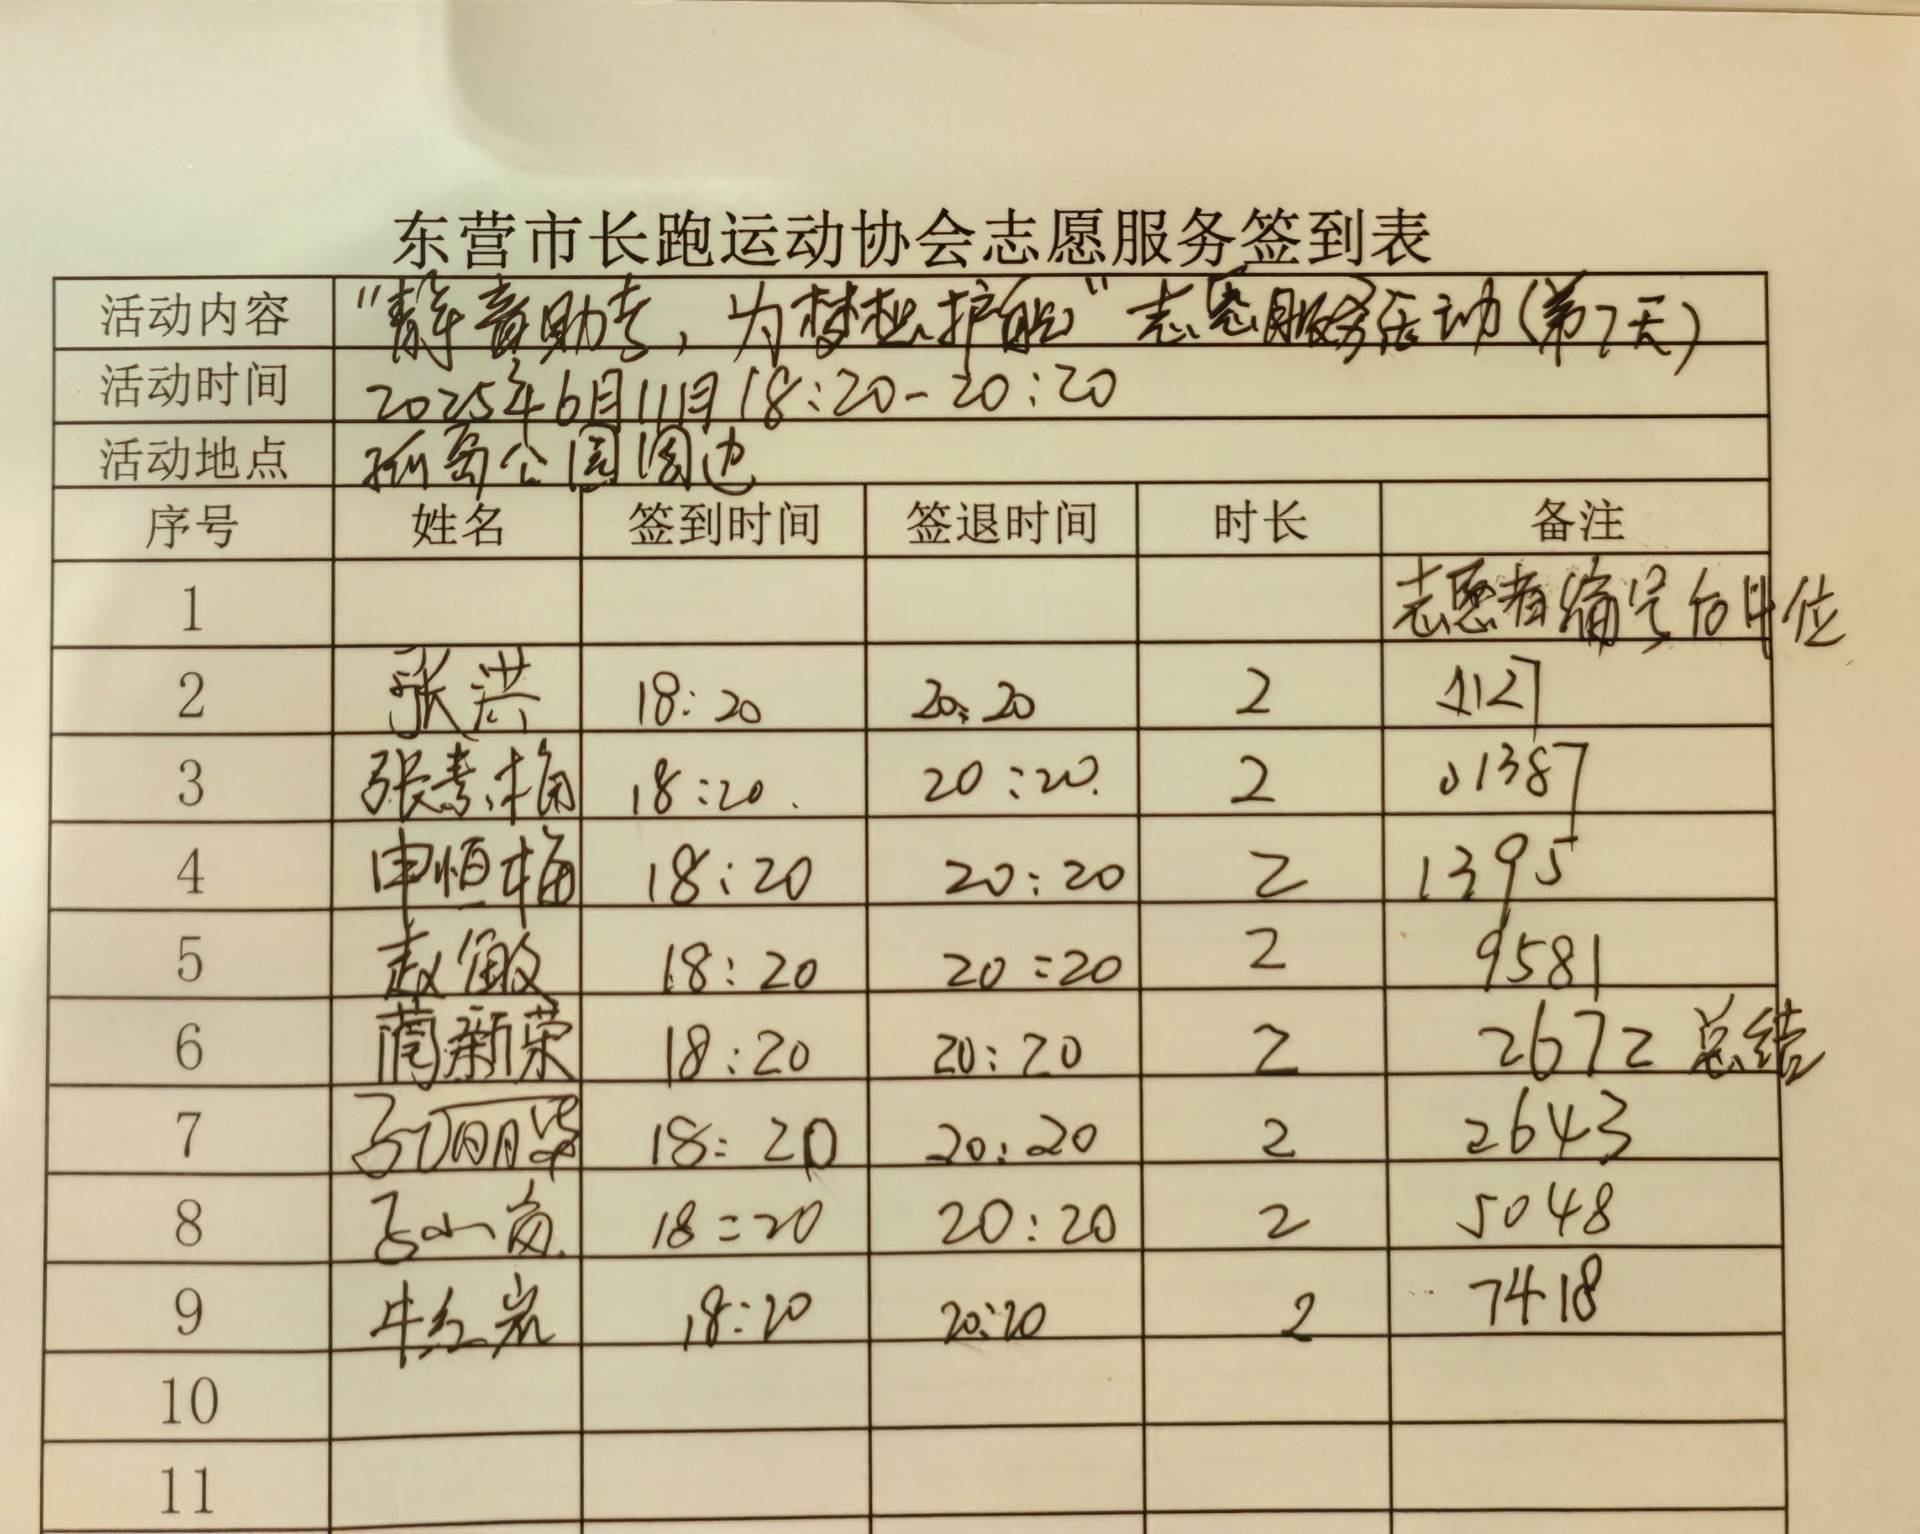 东营市长跑运动协会志愿服务签到表
活动内容 "静音助考，为梦想护航"志愿服务活动(第7天)
活动时间 2025年6月11日18:20-20:20
活动地点 孤岛公园周边
序号 姓名 签到时间 签退时间 时长 备注
1 志愿者编号后4位
2 张洪 18:20 20:20 2 1127
3 张素梅 18:20. 20:20. 2 01387
4 申恒梅 18:20 20:20 2 1395
5 赵敏 18:20 20:20 2 9581
6 蔺新荣 18:20 20:20 2 2672 总结
7 18:20 20:20 2 2643
8 孟小岗 18:20 20:20 2 5048
9 牛红岩 18:20 20:20 2 7418
10
11